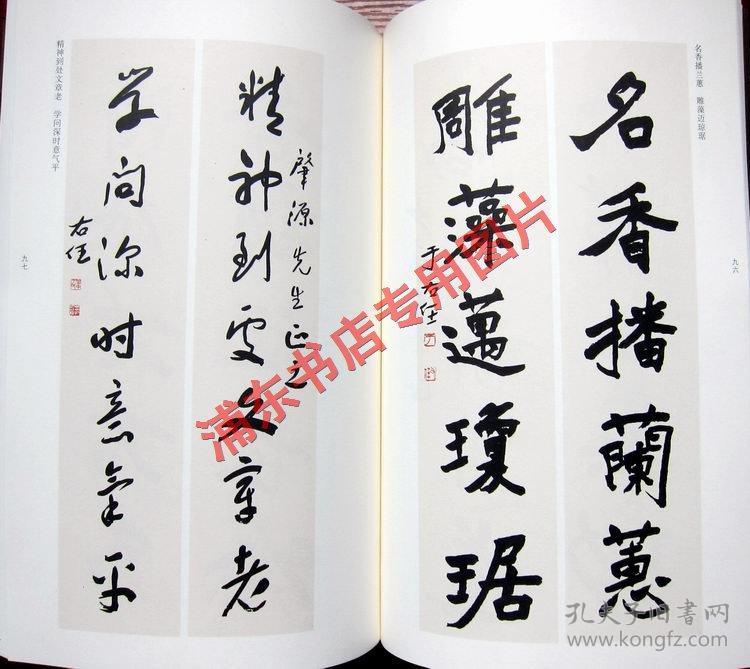 名香播兰蕙 雕藻迈琼琚
九六
名香播蘭蕙
雕藻邁瓊琚
于右任
肇源先生正之
精神到处文章老
学问深时意气平
右任
精神到处文章老 学问深时意气平
九七
浦东书店专用图片
孔夫子旧书网
www.kongfz.com